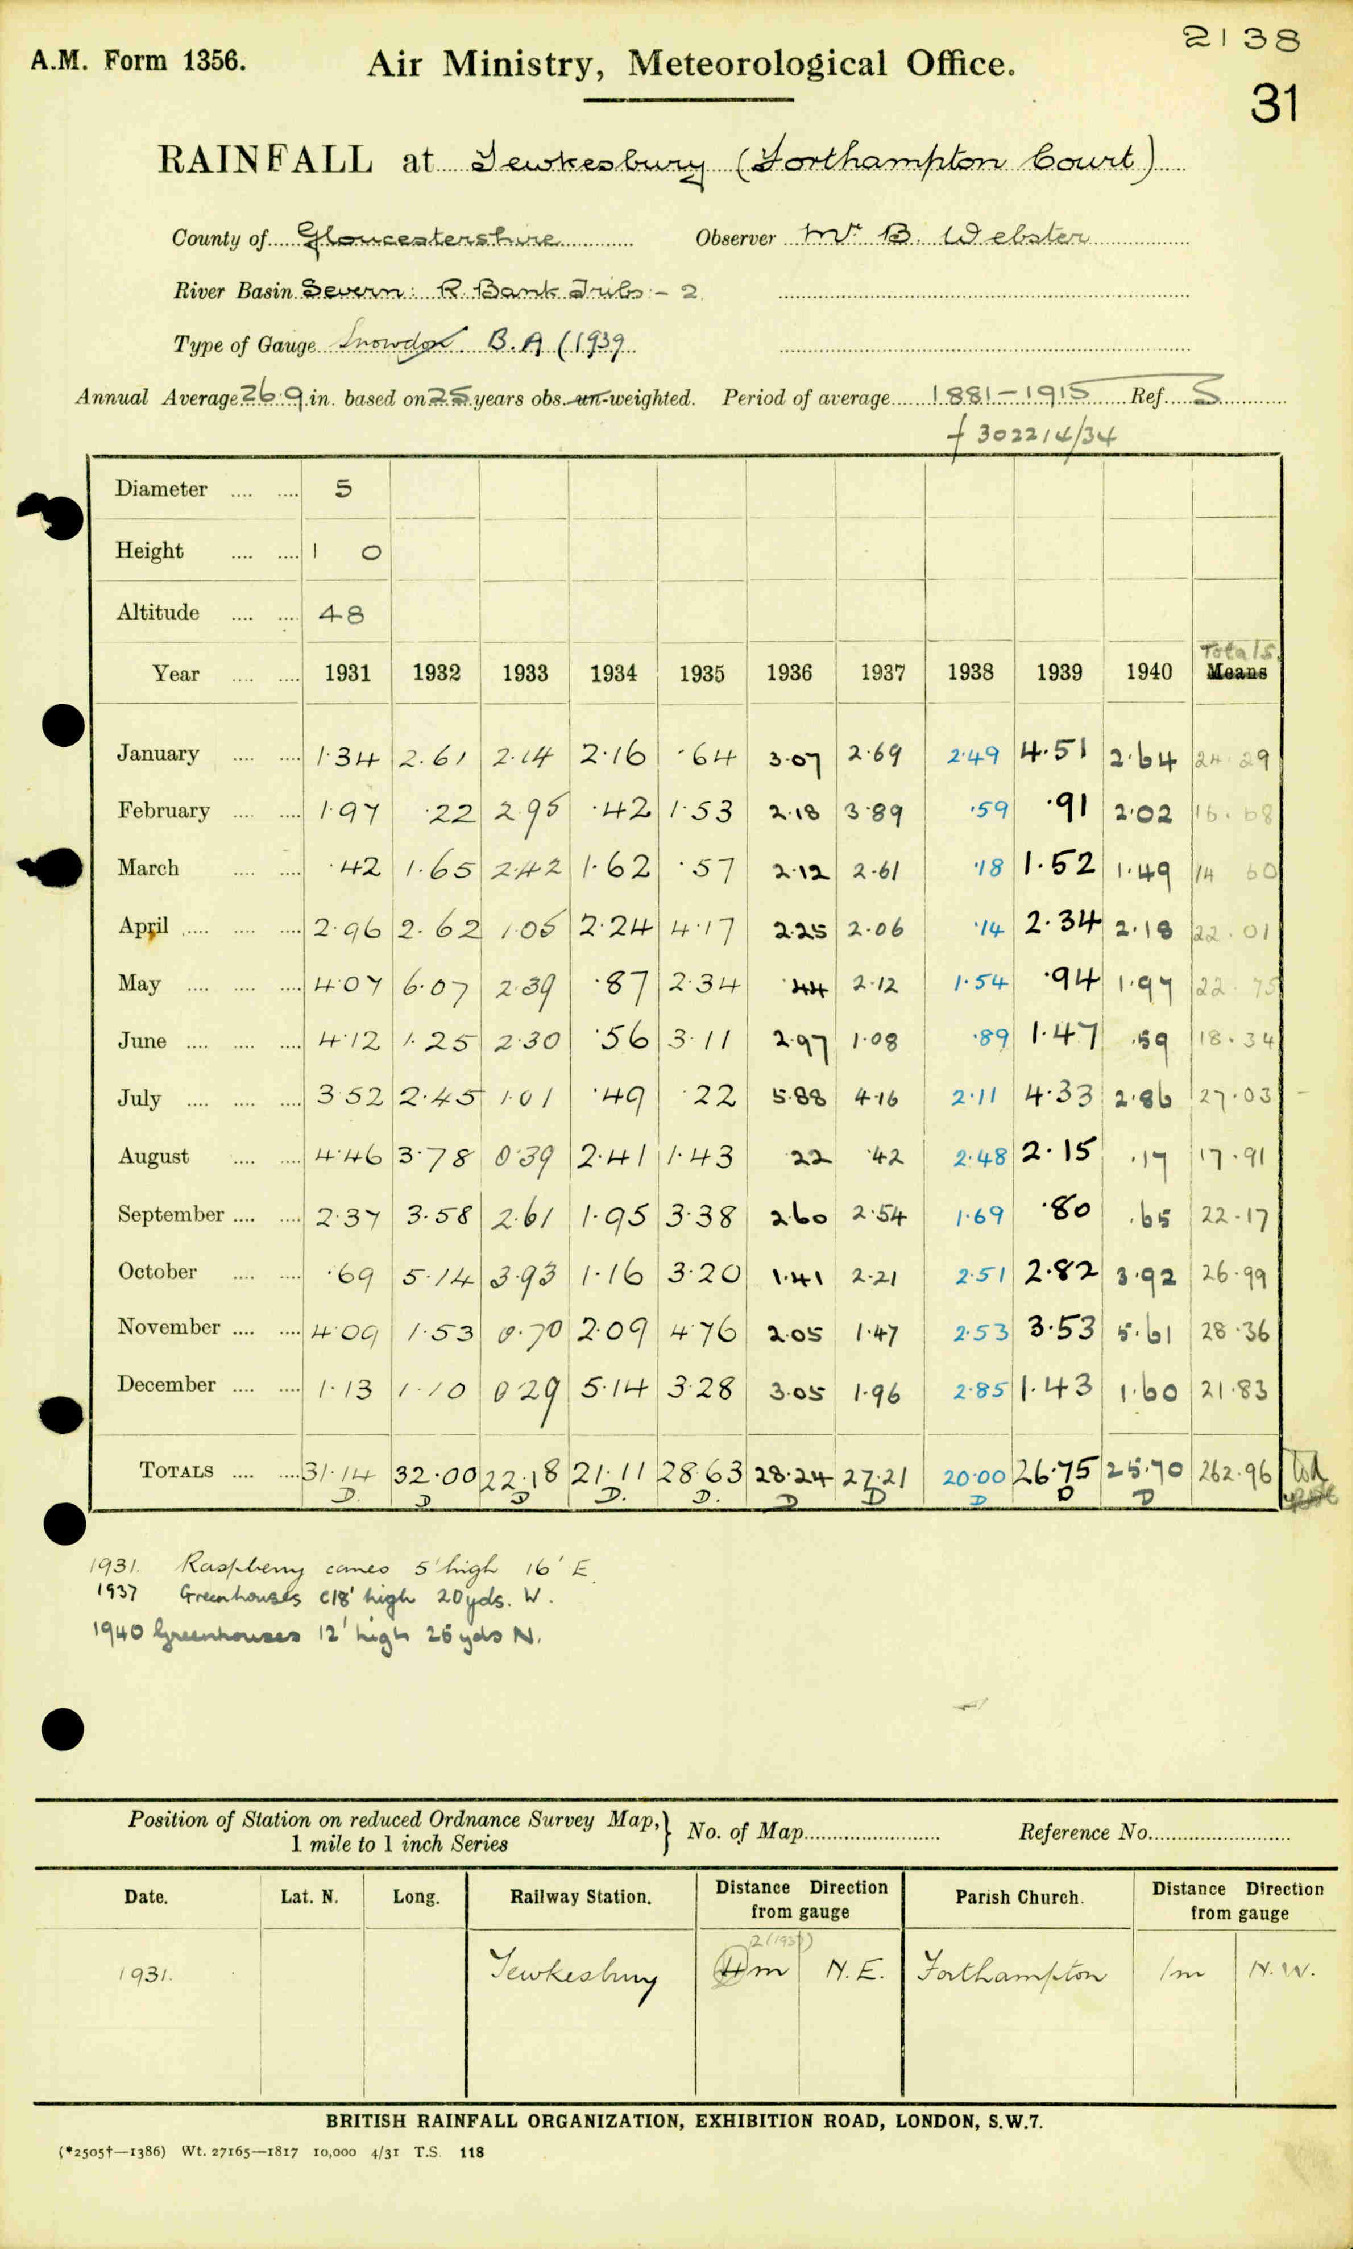 2138
A.M. Form 1356. Air Ministry, Meteorological Office.
31
RAINFALL at Tewkesbury (Forthampton Court)
County of Gloucestershire Observer Mr. B. Webster
River Basin Severn: R. Bank Tribs - 2
Type of Gauge Snowdon B.A (1939
Annual Average 26.9 in. based on 25 years obs. un-weighted. Period of average 1881-1915 Ref. S
f 302214/34
Diameter .... .... 5
Height .... .... 1 0
Altitude .... .... 48
Totals
Year .... .... 1931 1932 1933 1934 1935 1936 1937 1938 1939 1940 Means
January .... .... 1.34 2.61 2.14 2.16 .64 3.07 2.69 2.49 4.51 2.64 24.29
February .... .... 1.97 .22 2.95 .42 1.53 2.18 3.89 .59 .91 2.02 16.68
March .... .... .42 1.65 2.42 1.62 .57 2.12 2.61 .18 1.52 1.49 14 60
April .... .... .... 2.96 2.62 1.05 2.24 4.17 2.25 2.06 .14 2.34 2.18 22.01
May .... .... .... 4.07 6.07 2.39 .87 2.34 .44 2.12 1.54 .94 1.97 22.75
June .... .... .... 4.12 1.25 2.30 .56 3.11 2.97 1.08 .89 1.47 .59 18.34
July .... .... .... 3.52 2.45 1.01 .49 .22 5.88 4.16 2.11 4.33 2.86 27.03
August .... .... 4.46 3.78 0.39 2.41 1.43 .22 .42 2.48 2.15 .17 17.91
September .... .... 2.37 3.58 2.61 1.95 3.38 2.60 2.54 1.69 .80 .65 22.17
October .... .... .69 5.14 3.93 1.16 3.20 1.41 2.21 2.51 2.82 3.92 26.99
November .... .... 4.09 1.53 0.70 2.09 4.76 2.05 1.47 2.53 3.53 5.61 28.36
December .... .... 1.13 1.10 0.29 5.14 3.28 3.05 1.96 2.85 1.43 1.60 21.83
TOTALS .... .... 31.14 32.00 22.18 21.11 28.63 28.24 27.21 20.00 26.75 25.70 262.96
D. D D D. D. D D D D D
1931. Raspberry canes 5' high 16' E.
1937 Greenhouses c18' high 20yds. W.
1940 Greenhouses 12' high 25 yds N.
Position of Station on reduced Ordnance Survey Map, } No. of Map Reference No.
1 mile to 1 inch Series
Date. Lat. N. Long. Railway Station. Distance Direction from gauge Parish Church. Distance Direction from gauge
2 (1937)
1931. Tewkesbury 4m N.E. Forthampton 1m N.W.
BRITISH RAINFALL ORGANIZATION, EXHIBITION ROAD, LONDON, S.W.7.
(*2505†—1386) Wt. 27165—1817 10,000 4/31 T.S. 118